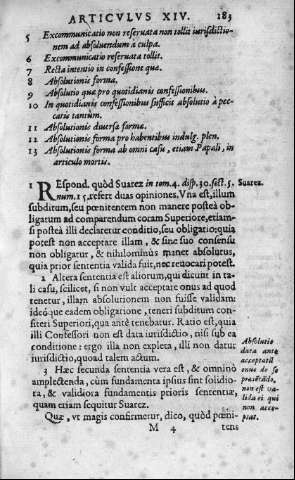 ARTICVLVS XIV. 183
5 Excommunicatio non reseruata non tollit iurisdictionem ad absoluendum à culpa.
6 Excommunicatio reseruata tollit.
7 Recta intentio in confessione quæ.
8 Absolutionis forma.
9 Absolutio quæ pro quotidianis confessionibus.
10 In quotidianis confessionibus sufficit absolutio à peccatis tantum.
11 Absolutionis diuersa formæ.
12 Absolutionis forma pro habentibus indulg. plen.
13 Absolutionis forma ab omni casu, etiam Papali, in
articulo mortis.
1 REspond. quòd Suarez in tom. 4. disp. 30. sect. 5.
Suarez.
num. 15. refert duas opiniones. Vna est, illum
subditum, seu pœnitentem non manere posteà obligatum
ad comparendum coram Superiore, etiamsi
posteà illi declaretur conditio, seu obligatio: quia
potest non acceptare illam, & sine suo consensu
non obligatur, & nihilominùs manet absolutus,
quia prior sententia valida fuit, nec reuocari potest.
2 Altera sententia est aliorum, qui dicunt in tali
casu, scilicet, si non vult acceptare onus ad quod
tenetur, illam absolutionem non fuisse validam:
ideóque eadem obligatione, teneri subditum confiteri
Superiori, qua antè tenebatur. Ratio est, quia
illi Confessori non est data iurisdictio, nisi sub ea
conditione: ergo illa non expleta, illi non datur
iurisdictio, quoad talem actum.
Absolutio
data ante
acceptati
onus de se
præstādo,
non est valida
ei qui
non acceptat.
3 Hæc secunda sententia vera est, & omninò
amplectenda, cùm fundamenta ipsius sint solidiora,
& validiora fundamentis prioris sententiæ,
quam etiam sequitur Suarez.
Quæ, vt magis confirmetur, dico, quòd pœni-
M 4 tens